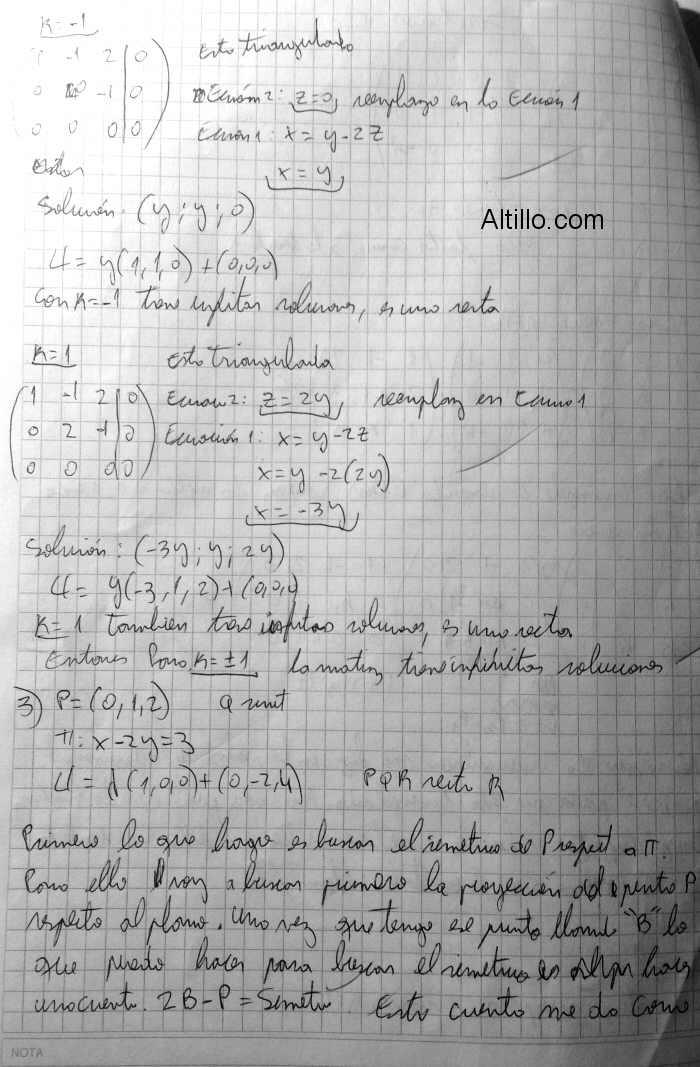 K=-1
1 -1 2 | 0 Esta triangulado
0 0 -1 | 0 Ecuación 2: z=0, reemplazo en la Ecuación 1
0 0 0 | 0 Ecuación 1: x = y-2z
x = y
Solución: (y; y; 0)
Altillo.com
U = y(1,1,0)+(0,0,0)
Con K=-1 tiene infinitas soluciones, es una recta
K=1 Esta triangulada
1 -1 2 | 0 Ecuación 2: z=2y, reemplazo en Ecuación 1
0 2 -1 | 0 Ecuación 1: x= y-2z
0 0 0 | 0 x=y-2(2y)
x=-3y
Solución: (-3y; y; 2y)
U= y(-3,1,2)+(0,0,0)
K=1 también tiene infinitas soluciones, es una recta
Entonces Para K=±1 la matriz tiene infinitas soluciones
3) P=(0,1,2) Q simet
π: x-2y=3
U= λ(1,0,0)+(0,-2,4) PQR recto R
Primero lo que hago es buscar el simetrico de P respect a π.
Para ello voy a buscar primero la proyección del punto P
respecto al plano. Una vez que tengo ese punto llamado "B" lo
que puedo hacer para buscar el simetrico es hacer
una cuenta. 2B-P=Simetri. Esta cuenta me da como
NOTA